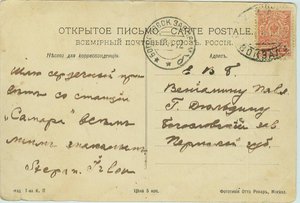 ОТКРЫТОЕ ПИСЬМО. CARTE POSTALE.
ВСЕМІРНЫЙ ПОЧТОВЫЙ СОЮЗЪ. РОССІЯ.
Мѣсто для корреспонденціи.
Адресъ.
Шлю сердечный при
вѣтъ со станціи
"Самара" всѣмъ
моимъ знакомымъ
С В Б
Веніамину Павл.
Г.
Богословскій зав.
Пермской губ.
Цѣна 5 коп.
Фототипія Отто Ренаръ, Москва.